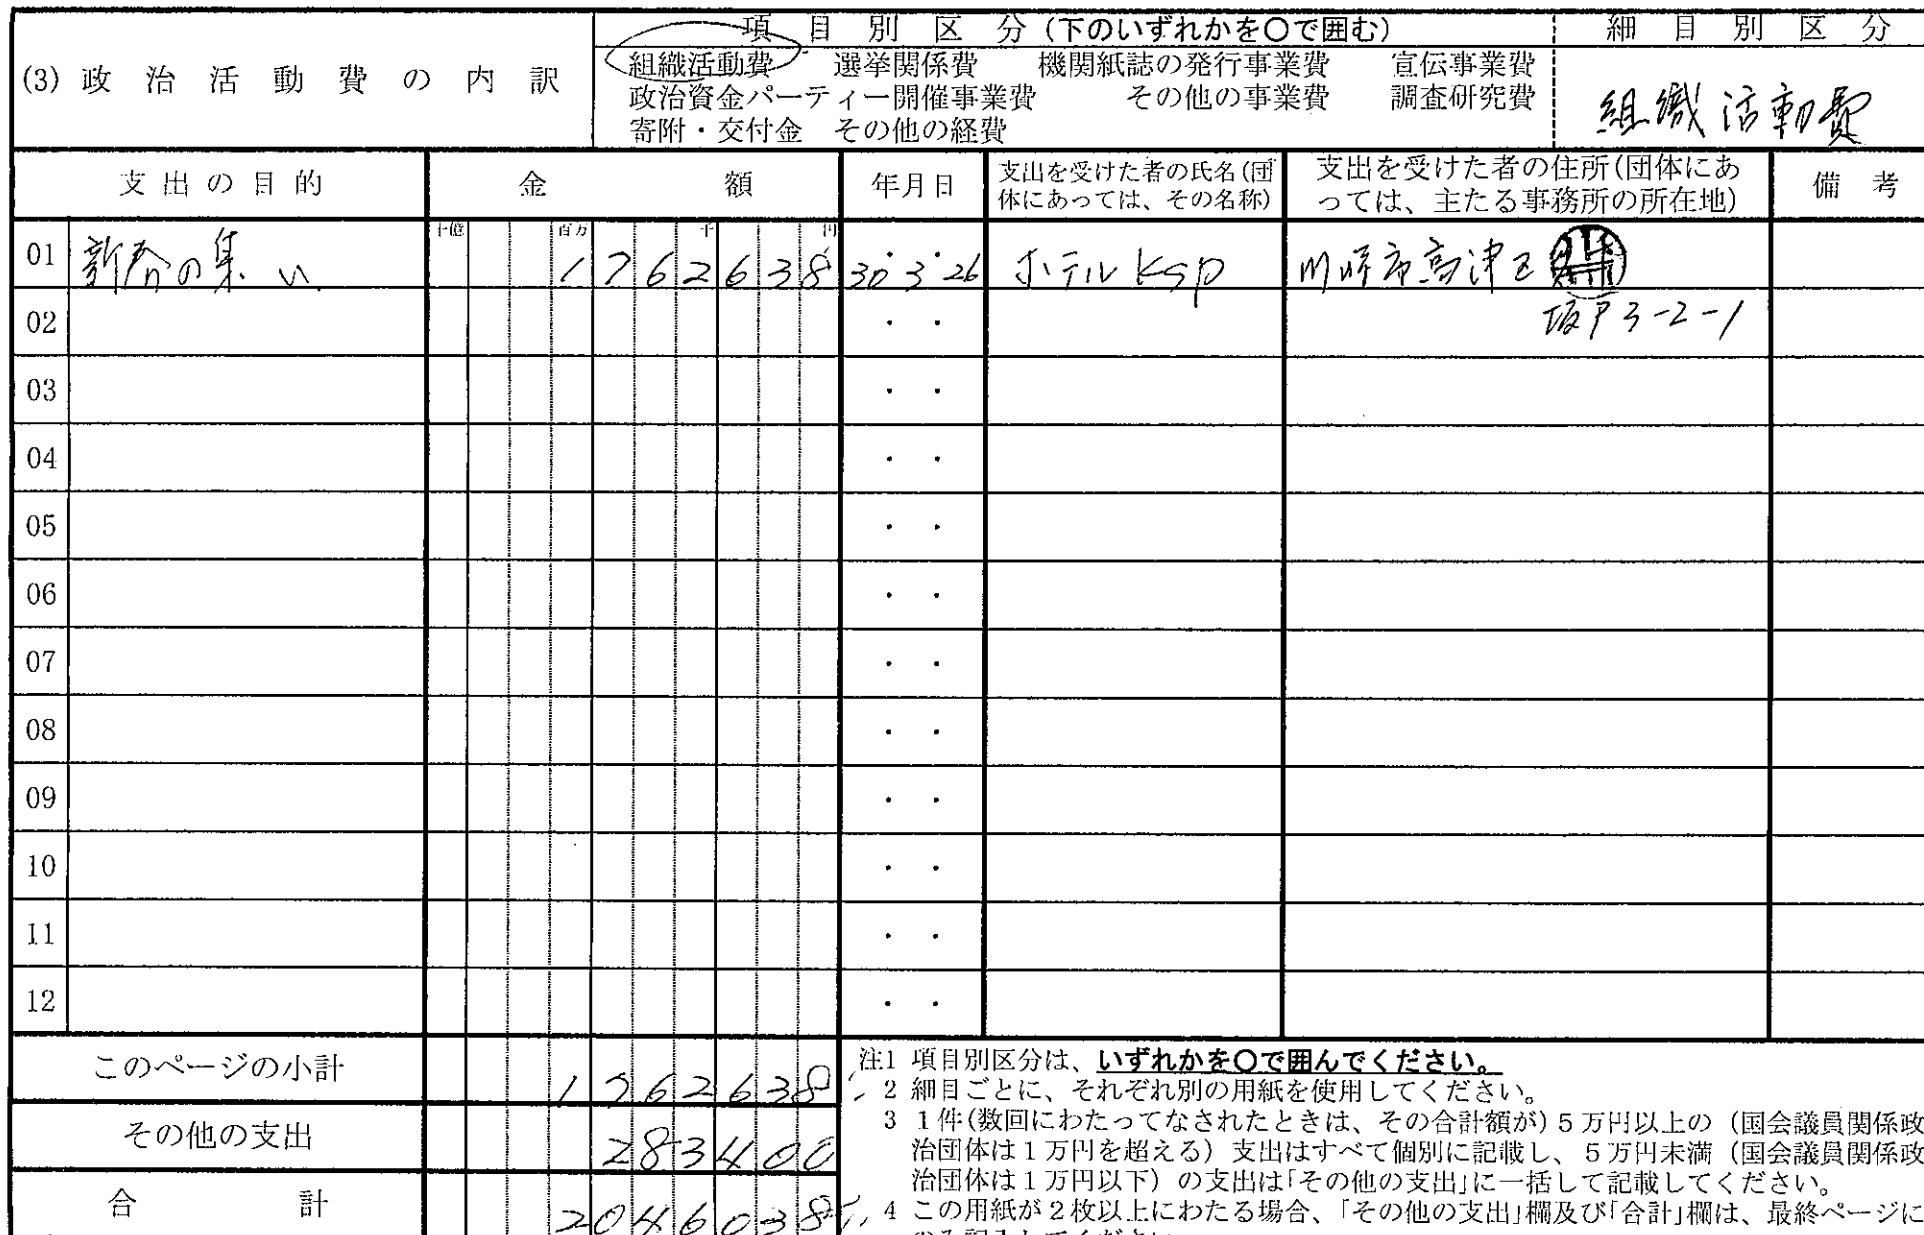 項目別区分(下のいずれかを〇で囲む) 細目別区分
(3)政治活動費の内訳
組織活動費 選挙関係費 機関紙誌の発行事業費 宣伝事業費
政治資金パーティー開催事業費 その他の事業費 調査研究費
寄附・交付金 その他の経費
組織活動費
支出の目的 金額 年月日 支出を受けた者の氏名(団体にあっては、その名称) 支出を受けた者の住所(団体にあっては、主たる事務所の所在地) 備考
十億 百万 千 円
01 新春の集い 1762638 30・3・26 ホテルKSP 川崎市高津区
坂戸3-2-1
02 ・ ・
03 ・ ・
04 ・ ・
05 ・ ・
06 ・ ・
07 ・ ・
08 ・ ・
09 ・ ・
10 ・ ・
11 ・ ・
12 ・ ・
このページの小計 1762638
その他の支出 283400
合計 2046038
注1 項目別区分は、いずれかを〇で囲んでください。
2 細目ごとに、それぞれ別の用紙を使用してください。
3 1件(数回にわたってなされたときは、その合計額が)5万円以上の(国会議員関係政
治団体は1万円を超える)支出はすべて個別に記載し、5万円未満(国会議員関係政
治団体は1万円以下)の支出は「その他の支出」に一括して記載してください。
4 この用紙が2枚以上にわたる場合、「その他の支出」欄及び「合計」欄は、最終ページに